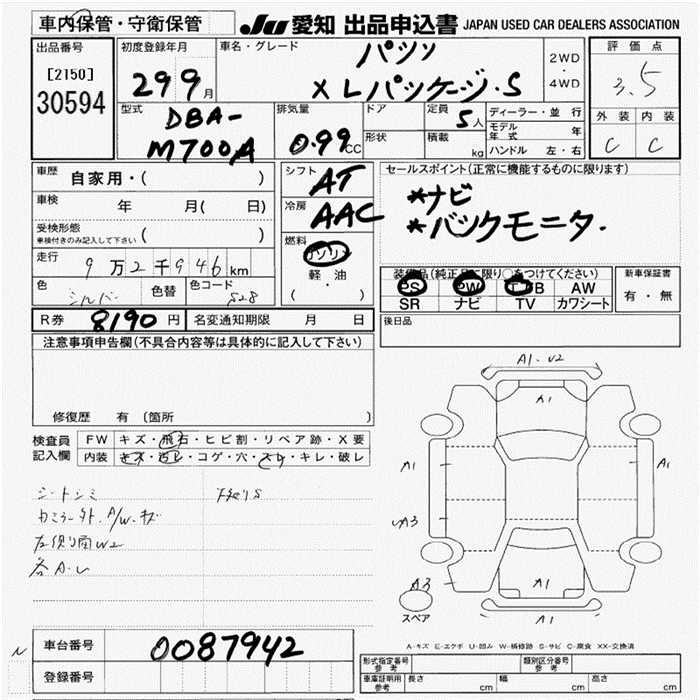 車内保管・守衛保管
JU 愛知 出品申込書 JAPAN USED CAR DEALERS ASSOCIATION
出品番号
[2150]
30594
初度登録年月
29 9月
車名・グレード
パッソ
X Lパッケージ・S
2WD
・
4WD
評価点
3.5
外装 内装
C C
型式
DBA-
M700A
排気量
0.99CC
ドア
定員
5人
形状
積載
kg
ディーラー・並行
モデル年式 年
ハンドル 左・右
車歴 自家用・( )
車検 年 月( 日)
受検形態
車検付きのみ記入して下さい ( )
走行 9万2千946km
色 シルバー 色替 色コード S28
シフト AT
冷房 AAC
燃料
ガソリン
軽・油
( )
セールスポイント(正常に機能するものに限ります)
*ナビ
*バックモニタ.
装備品(純正品に限り○をつけてください)
PS PW エアB AW
SR ナビ TV カワシート
新車保証書
有・無
R券 8190円 名変通知期限 月 日
後日品
注意事項申告欄(不具合内容等は具体的に記入して下さい)
修復歴 有 (箇所 )
検査員
記入欄
FW キズ・飛石・ヒビ割・リペア跡・X要
内装 キズ・汚レ・コゲ・穴・スレ・キレ・破レ
シートシミ
カミラー外.A/W.キズ
左側面W2
各A.U
A1.U2
A1
A1
A1
A3
A3
A1
A1
スペア
A-キズ E-エクボ U-凹み W-補修跡 S-サビ C-腐食 XX-交換済
N
車台番号 0087942
登録番号
形式指定番号
参考
類別区分番号
参考
車庫証明用
参考
長さ cm 幅 cm 高さ cm